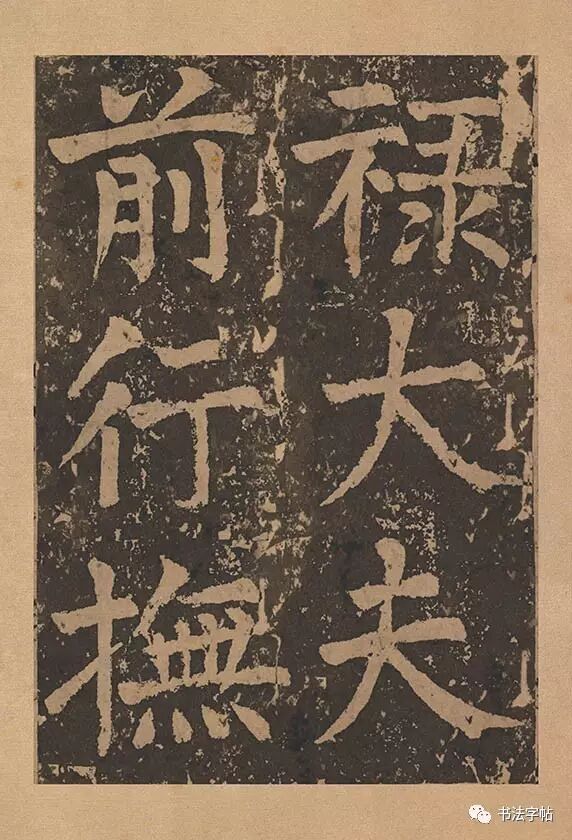 禄大夫
前行撫
书法字帖